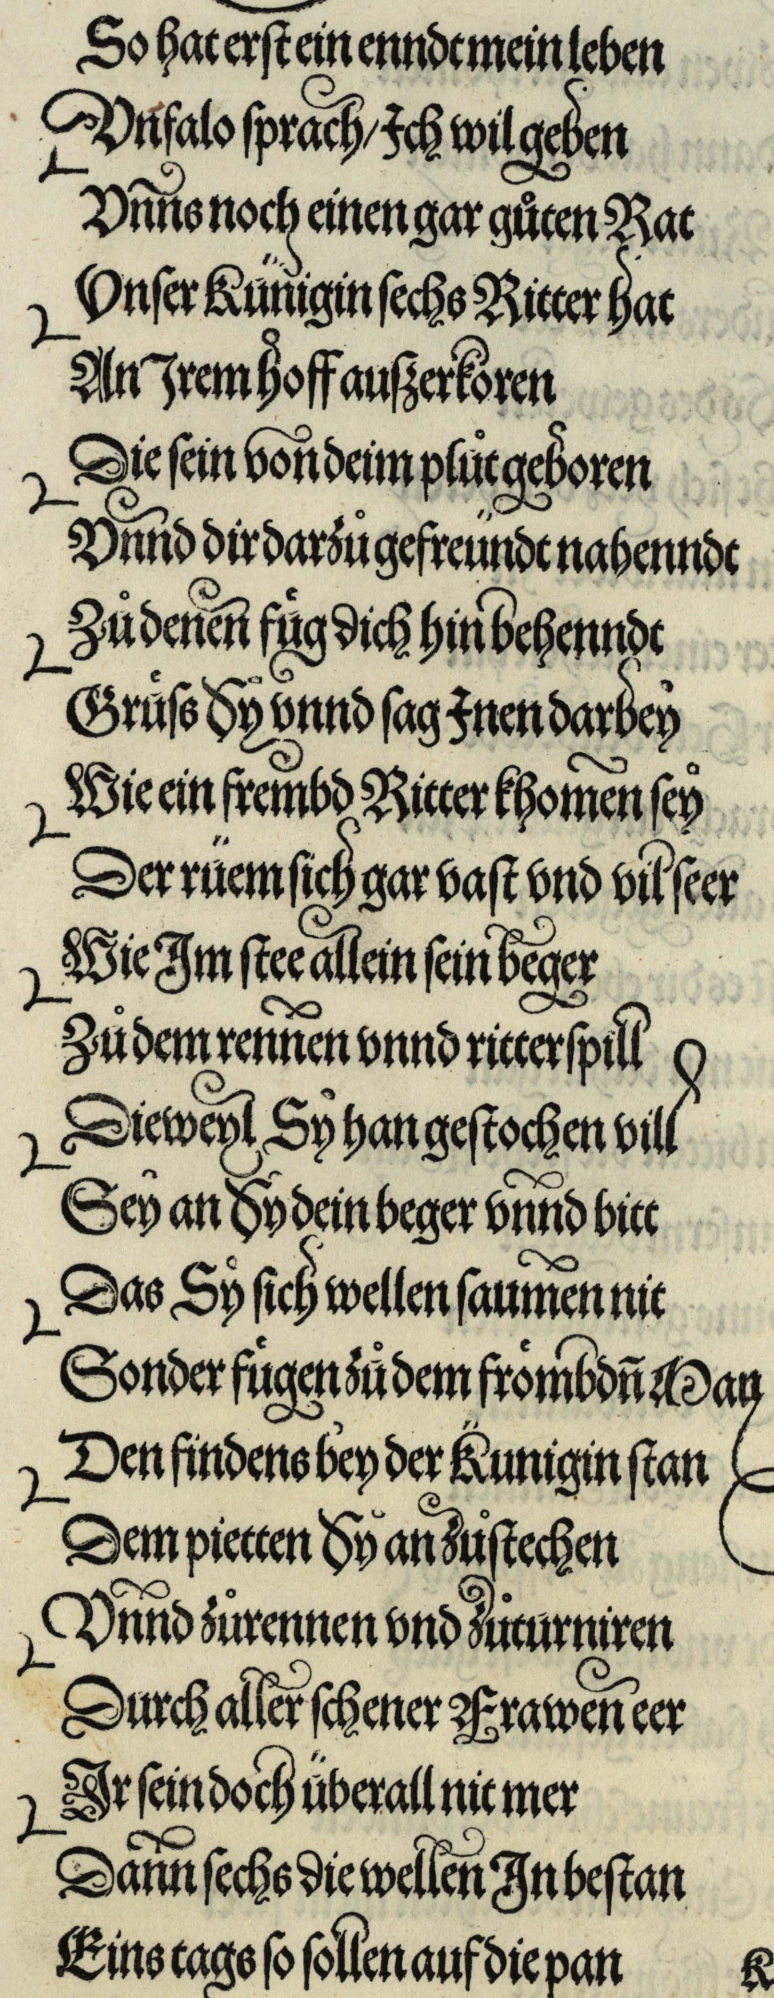 So hat erst ein ennd mein leben
Vnfalo sprach/ Ich wil geben
Vnns noch einen gar gůten Rat
Vnser Künigin sechs Ritter hat
An Irem hoff auszerkoren
Die sein von deim plůt geboren
Vnnd dir darzů gefreündt nahenndt
Zů denen füg dich hin behenndt
Grüss Sy vnnd sag Inen darbey
Wie ein frembd Ritter khomen sey
Der rüem sich gar vast vnd vil seer
Wie Im stee allein sein beger
Zů dem rennen vnnd ritterspill
Dieweyl Sy han gestochen vill
Sey an Sy dein beger vnnd bitt
Das Sy sich wellen saumen nit
Sonder fügen zů dem frömbdn̄ Man
Den findens bey der Kunigin stan
Dem pietten Sy an zůstechen
Vnnd zůrennen vnd zůturniren
Durch aller schener Frawen eer
Ir sein doch überall nit mer
Dann sechs die wellen In bestan
Eins tags so sollen auf die pan
K